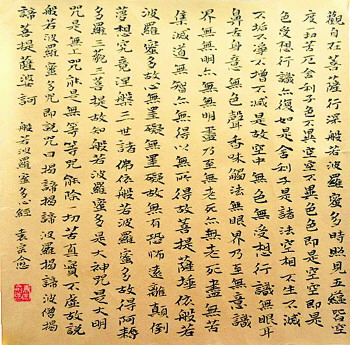 觀自在菩薩行深般若波羅蜜多時照見五蘊皆空
度一切苦厄舍利子色不異空空不異色色即是空空即是
色受想行識亦復如是舍利子是諸法空相不生不滅
不垢不淨不增不減是故空中無色無受想行識無眼耳
鼻舌身意無色聲香味觸法無眼界乃至無意識
界無無明亦無無明盡乃至無老死亦無老死盡無苦
集滅道無智亦無得以無所得故菩提薩埵依般若
波羅蜜多故心無罣礙無罣礙故無有恐怖遠離顛倒
夢想究竟涅槃三世諸佛依般若波羅蜜多故得阿耨
多羅三藐三菩提故知般若波羅蜜多是大神咒是大明
咒是無上咒是無等等咒能除一切苦真實不虛故說
般若波羅蜜多咒即說咒曰揭諦揭諦波羅揭諦波羅僧揭
諦菩提薩婆訶 般若波羅蜜多心經